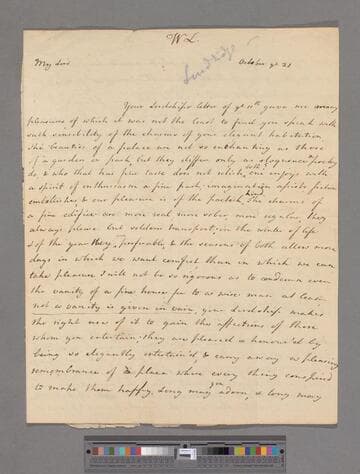 W L.
Sandridge
My Lord
October ye 21
Your Lordships letter of ye 11th gave me many
pleasures of which it was not the least to find you speak with
such sensibility of the charms of your elegant habitation
The beauties of a palace are not so enchanting as those
of a garden or park but they differ only as eloquence & poetry
do, & who that has pure taste does not relish both, one enjoys with
a spirit of enthusiasm a fine park, imagination assists fiction
embellishes & our pleasure is of the poetick kind The charms of
a fine edifice are more real more sober more regular, they
always please but seldom transport; in the winter of life
& of the year they preferable, & the seasons of both allow more
days in which we want comfort than in which we can
take pleasure I will not be so rigorous as to condemn even
the vanity of a fine house for to a wise man at least
not a vanity is given in vain, your Lordship makes
the right use of it to gain the affections of those
whom you entertain, they are pleased & honour'd by
being so elegantly entertain'd & carry away a pleasing
remembrance of a place where every thing conspired
to make them happy, Long may you adorn & long may